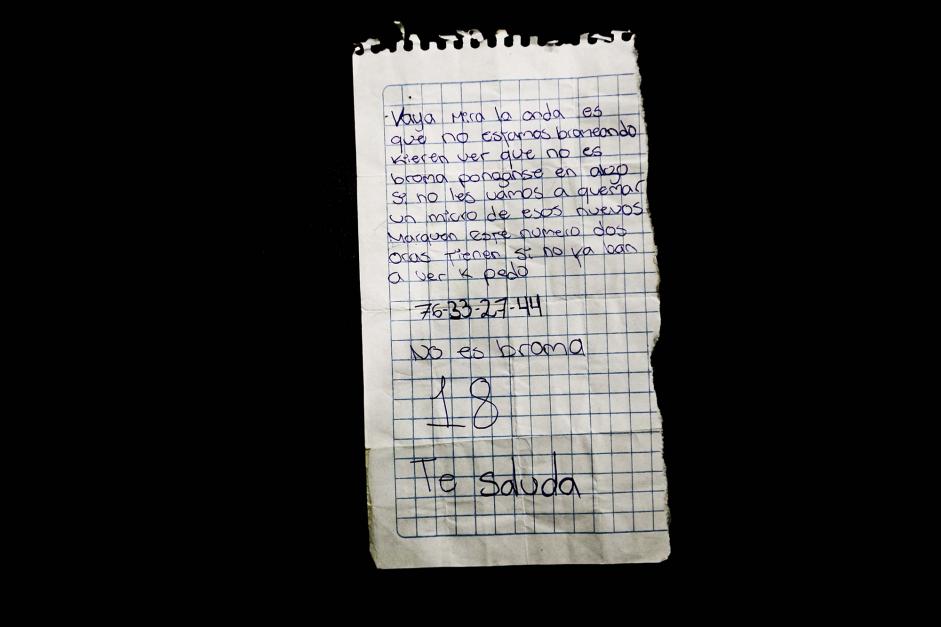 Vaya Mira la onda es
que no estamos bromeando
kieren ver que no es
broma ponganse en algo
si no les vamos a quemar
un micro de esos nuevos
Marquen Este numero dos
oras tienen si no ya ban
a ver k pedo
76-33-27-44
No es broma
18
Te saluda